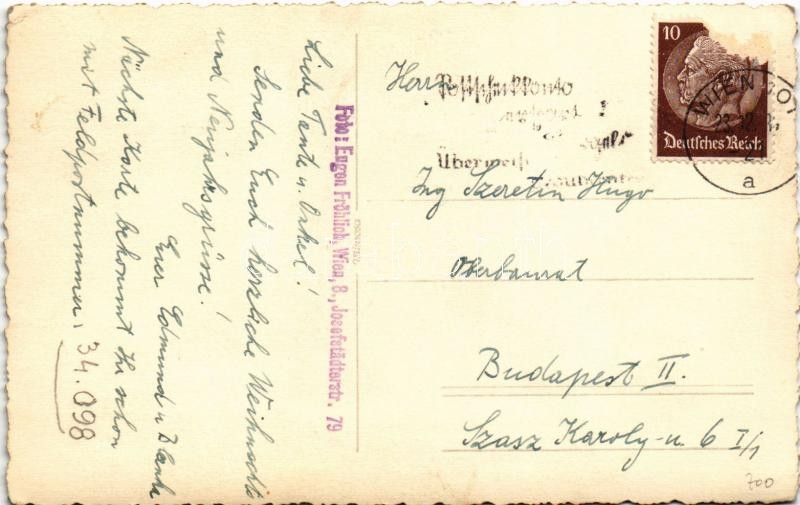 Liebe Tante u. Onkel!
Senden Euch herzliche Weihnachts
und Neujahrsgrüsse!
Euer Edmund u.
Nächste Karte bekommt Ihr schon
mit Feldpostnummer: 34.098
Foto: Eugen Fröhlich, Wien, 8., Josefstädterstr. 79
Herrn
Postscheckkonto
Ing Szeretin Hugo
Oberbaurat
Budapest II.
Szasz Karoly-u 6 I/1
10
Deutsches Reich
WIEN
a
700